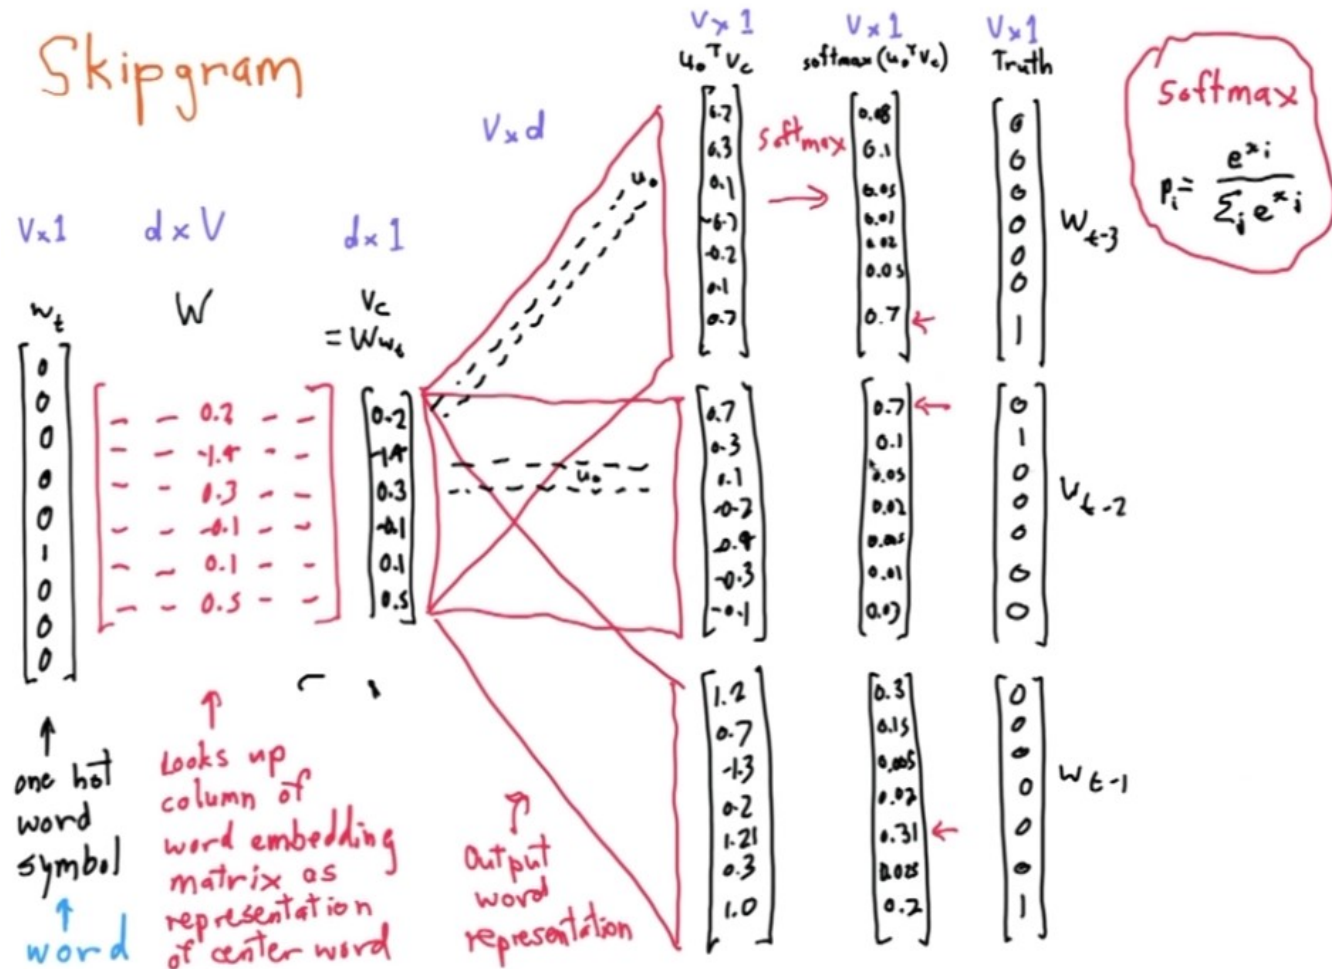 Skipgram
V×1
d×V
d×1
V×d
V×1
V×1
V×1
w_t
W
V_c
= Ww_t
u_o^T V_c
softmax(u_o^T V_c)
Truth
0
0
0
0
0
1
0
0
0
- - 0.2 - -
- - -1.4 - -
- - 0.3 - -
- - -0.1 - -
- - 0.1 - -
- - 0.5 - -
0.2
-1.4
0.3
-0.1
0.1
0.5
u_o
u_o
0.3
0.1
-0.2
0.1
0.7
softmax
0.08
0.1
0.05
0.01
0.02
0.05
0.7
0
0
0
0
0
0
1
W_t-3
0.7
0.3
0.1
-0.2
-0.4
-0.3
-0.1
0.7
0.1
0.05
0.02
0.01
0.03
0
1
0
0
0
0
0
W_t-2
1.2
0.7
-1.3
0.2
1.21
0.3
1.0
0.3
0.15
0.005
0.02
0.31
0.025
0.2
0
0
0
0
0
0
1
W_t-1
softmax
p_i = e^x_i / Σ_j e^x_j
one hot
word
symbol
word
Looks up
column of
word embedding
matrix as
representation
of center word
Output
word
representation